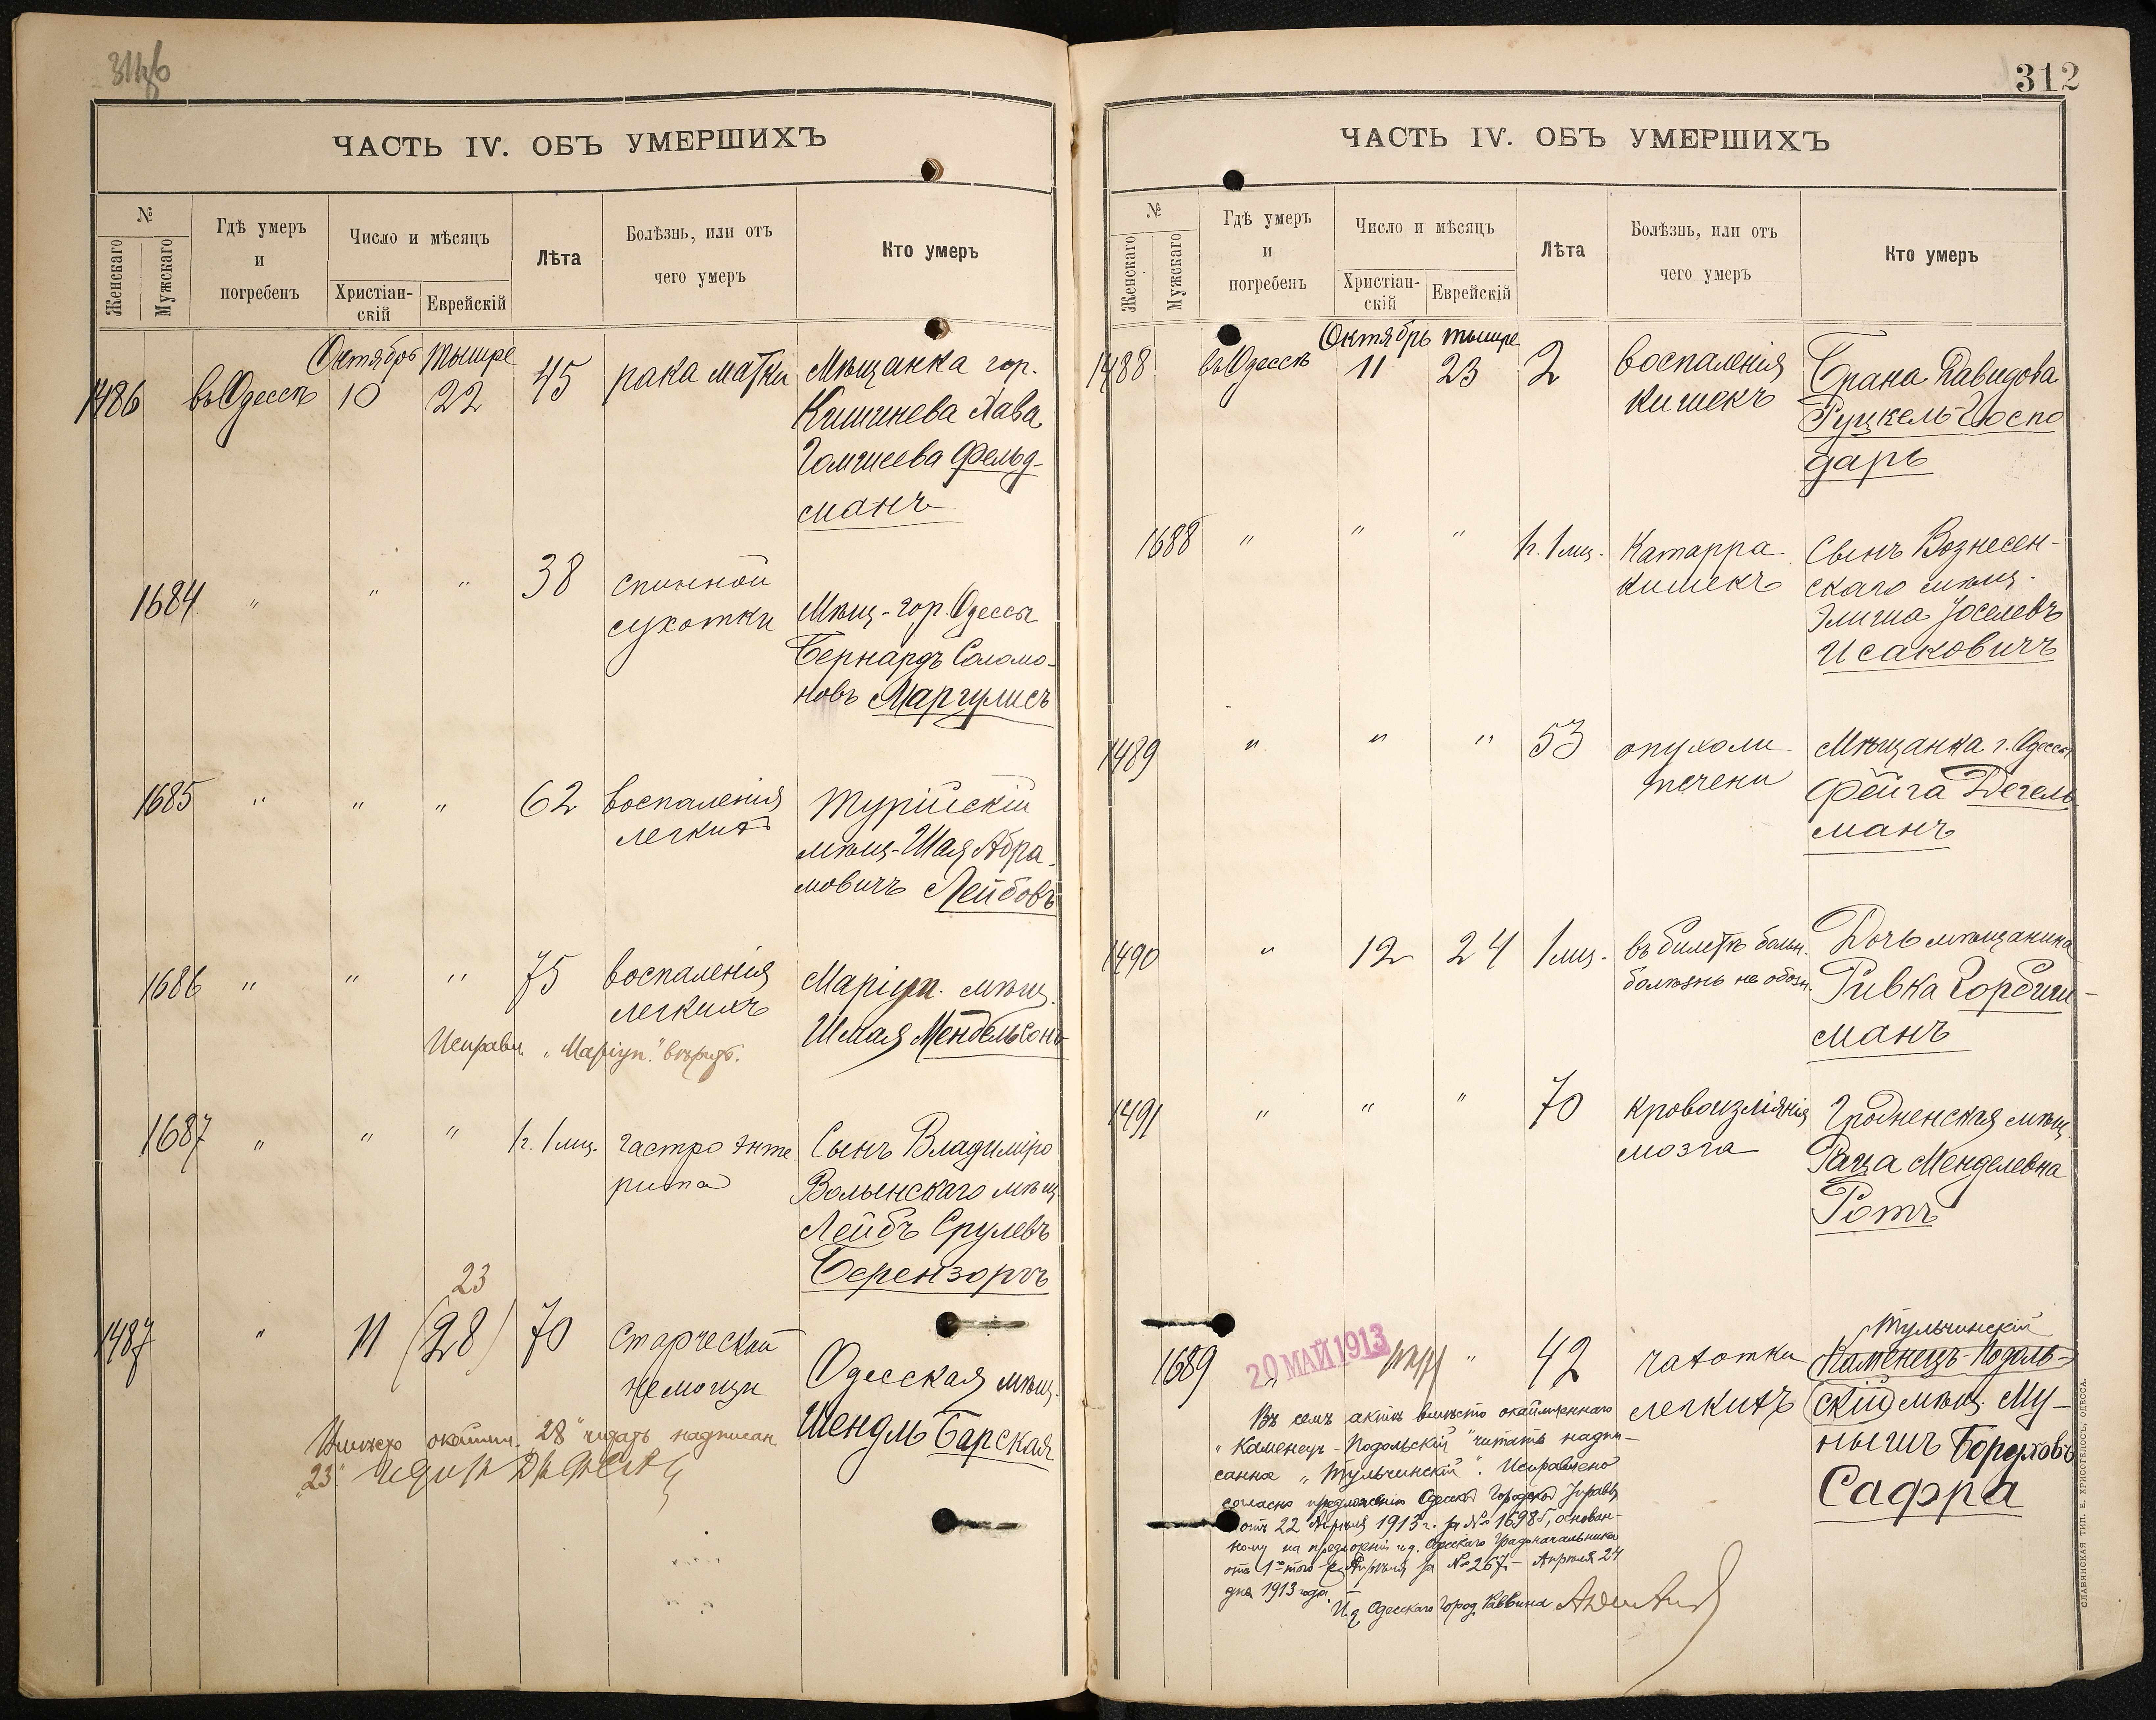 ЧАСТЬ IV. ОБЪ УМЕРШИХЪ
№
Женскаго
Мужскаго
Гдѣ умеръ
и
погребенъ
Число и мѣсяцъ
Христіан-
скій
Еврейскій
Лѣта
Болѣзнь, или отъ
чего умеръ
Кто умеръ
Октябрь Тышре
1486 въ Одессѣ 10 22 45 рака матки Мѣщанка гор.
Кишинева Хава
Фельд-
манъ
1684 " " " 38 спинной
сухотки Мѣщ. гор. Одессы
Бернардъ Соломо-
новъ Маргулисъ
1685 " " " 62 воспаленія
легкихъ Турійскій
мѣщ. Шая Абра-
мовичъ Лейбовъ
1686 " " " 75 воспаленія
легкихъ Маріуп. мѣщ.
Шмая Мендельсонъ
Исправл. "Маріуп." вѣрно.
1687 " " " 1г. 1 мц. гастро энте-
рита Сынъ Владиміро
Волынскаго мѣщ.
Лейбъ Срулевъ
Берензонъ
23
1487 " 11 (28) 70 старческой
немощи Одесская мѣщ.
Шендль Барская
Вмѣсто окаймл. "28" читать надписан.
"23".
312
ЧАСТЬ IV. ОБЪ УМЕРШИХЪ
№
Женскаго
Мужскаго
Гдѣ умеръ
и
погребенъ
Число и мѣсяцъ
Христіан-
скій
Еврейскій
Лѣта
Болѣзнь, или отъ
чего умеръ
Кто умеръ
Октябрь Тышре
1488 въ Одессѣ 11 23 2 воспаленія
кишекъ Брана Давидова
Руцкель-Госпо
дарь
1688 " " " 1г. 1 мц. Катарра
кишекъ Сынъ Вознесен-
скаго мѣщ.
Элиша Іоселевъ
Исаковичъ
1489 " " " 53 опухоли
печени Мѣщанка г. Одессы
Фейга Дегель
манъ
1490 " 12 24 1 мц. въ билетѣ больн.
болѣзнь не обозн. Дочь мѣщанина
Ривка
манъ
1491 " " " 70 кровоизліянія
мозга Гродненская мѣщ.
Раца Менделевна
Ротъ
Тульчинскій
1689 " " 42 чахотки
легкихъ (Каменецъ-Подоль-
скій) мѣщ. Му-
нышъ Боруховъ
Сафра
20 МАЙ 1913
Въ семъ актѣ вмѣсто окаймленнаго
"Каменецъ-Подольскій" читать надпи-
санное "Тульчинскій". Исправлено
согласно предложенію Одесской Городской Управы
отъ 22 Апрѣля 1913 г. за № 16985, основан-
ному на предложеніи и.д. Одесскаго Градоначальника
отъ 1-го того-же Апрѣля за № 267. Апрѣля 24
дня 1913 года.
И.д. Одесскаго Город. Раввина
СЛАВЯНСКАЯ ТИП. Е. ХРИСОГЕЛОСЪ, ОДЕССА.